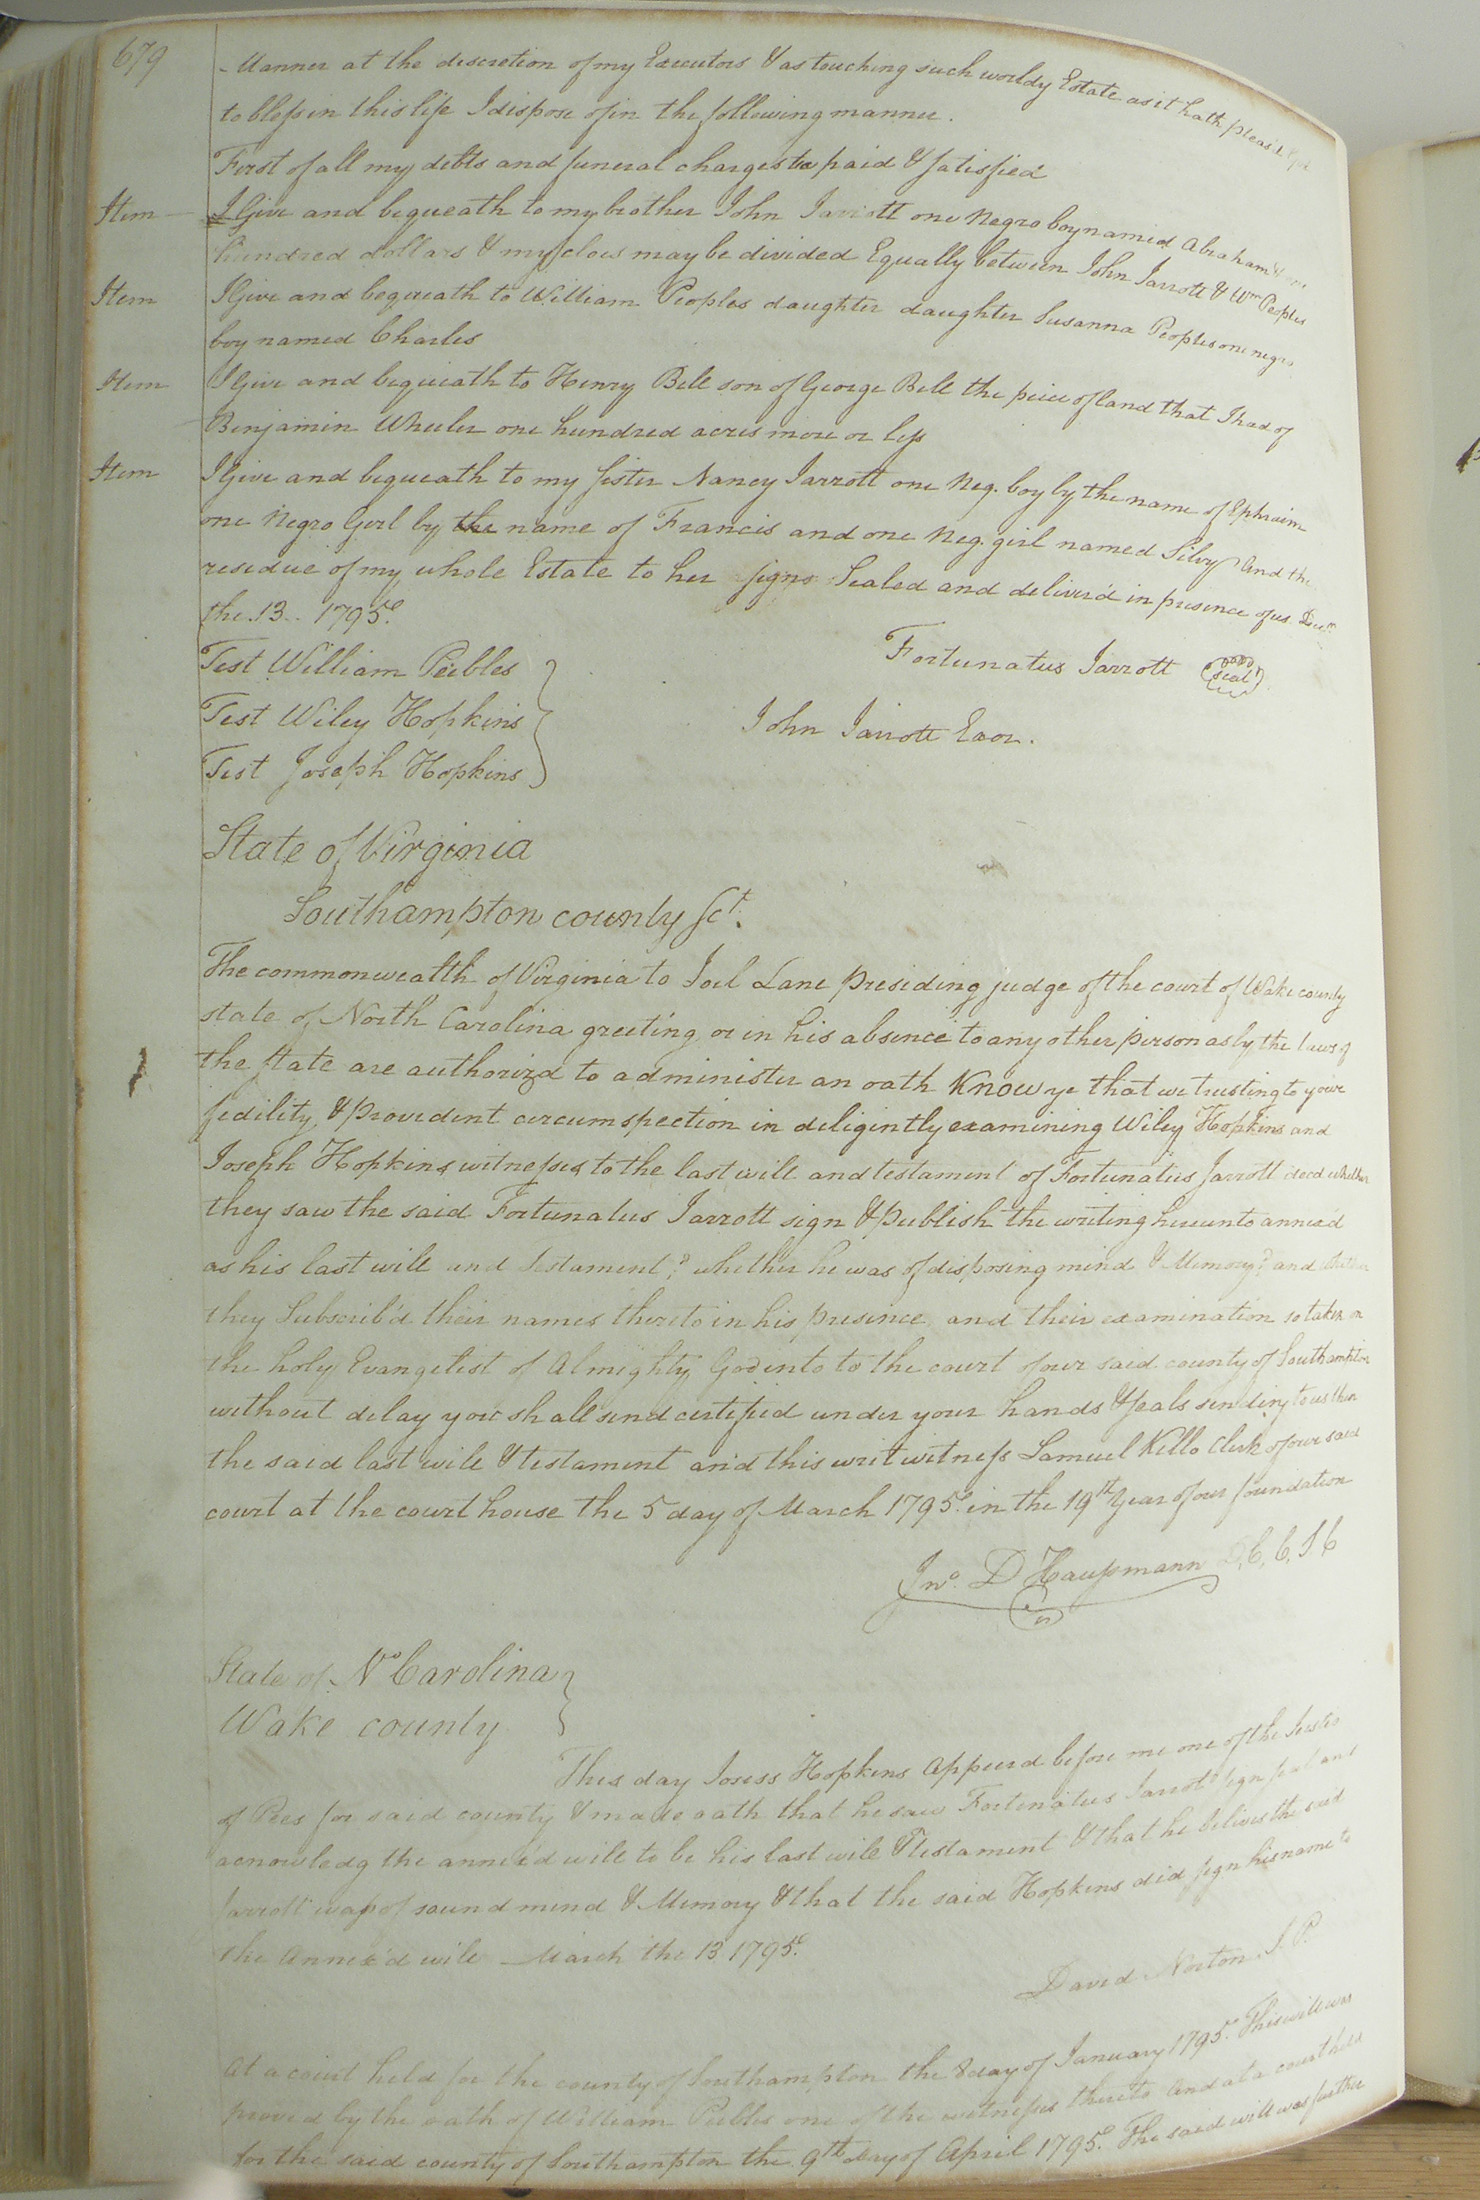 679
Manner at the discretion of my Executors & as touching such worldy Estate as it hath pleas'd
to bless in this life I dispose of in the following manner.
First of all my debts and funeral charges be paid & satisfied
Item I Give and bequeath to my brother John Jarrott one Negro boy named Abraham
hundred dollars & my cloes may be divided Equally between John Jarrott & Wm Peoples
Item I Give and bequeath to William Peoples daughter daughter Susanna Peoples one negro
boy named Charles
Item I Give and bequeath to Henry Bell son of George Bell the peice of land that I had of
Benjamin Wheeler one hundred acres more or less
Item I Give and bequeath to my sister Nancy Jarrott one Neg. boy by the name of Ephraim
one Negro Girl by the name of Francis and one Neg. girl named Silvy And the
residue of my whole Estate to her signs Sealed and deliver'd in presence of us
the 13.. 1795.
Test William Peebles
Fortunatus Jarrott (seal)
Test Wiley Hopkins
John Jarrott Exor.
Test Joseph Hopkins
State of Virginia
Southampton county Sct.
The commonwealth of Virginia to Joel Lane presiding judge of the court of Wake county
state of North Carolina greeting or in his absence to any other person as by the laws of
the state are authorizd to administer an oath Know ye that we trusting to your
fedility & provident circumspection in deligintly examining Wiley Hopkins and
Joseph Hopkins witnesses to the last will and testament of Fortunatus Jarrott decd whether
they saw the said Fortunatus Jarrott sign & publish the writing hereunto annexd
as his last will and testament? whether he was of disposing mind & Memory? and
they Subscrib'd their names thereto in his presence and their examination so taken on
the holy Evangelist of Almighty God into to the court of our said county of Southampton
without delay you shall send certified under your hands & seals sending to us then
the said last will & testament and this writ witness Samuel Kello Clerk of our said
court at the court house the 5 day of March 1795. in the 19th Year of our foundation
Jno. D Haussmann D, C, C, S C
State of No Carolina
Wake county
This day Josess Hopkins Appeerd before me one of the Justis
of Pees for said county & made oath that he saw Fortinatus Jarrott sign seal and
acnowledg the annexd will to be his last will & testament & that he belives the said
Jarrott was of sound mind & Memory & that the said Hopkins did sign his name to
the Annex'd will March the 13 1795.
David Norton J. P.
At a court held for the county of Southampton the 8 day of January 1795. This will was
proved by the oath of William Peebles one of the witnesses thereto And at a court held
for the said county of Southampton the 9th day of April 1795. The said will was further